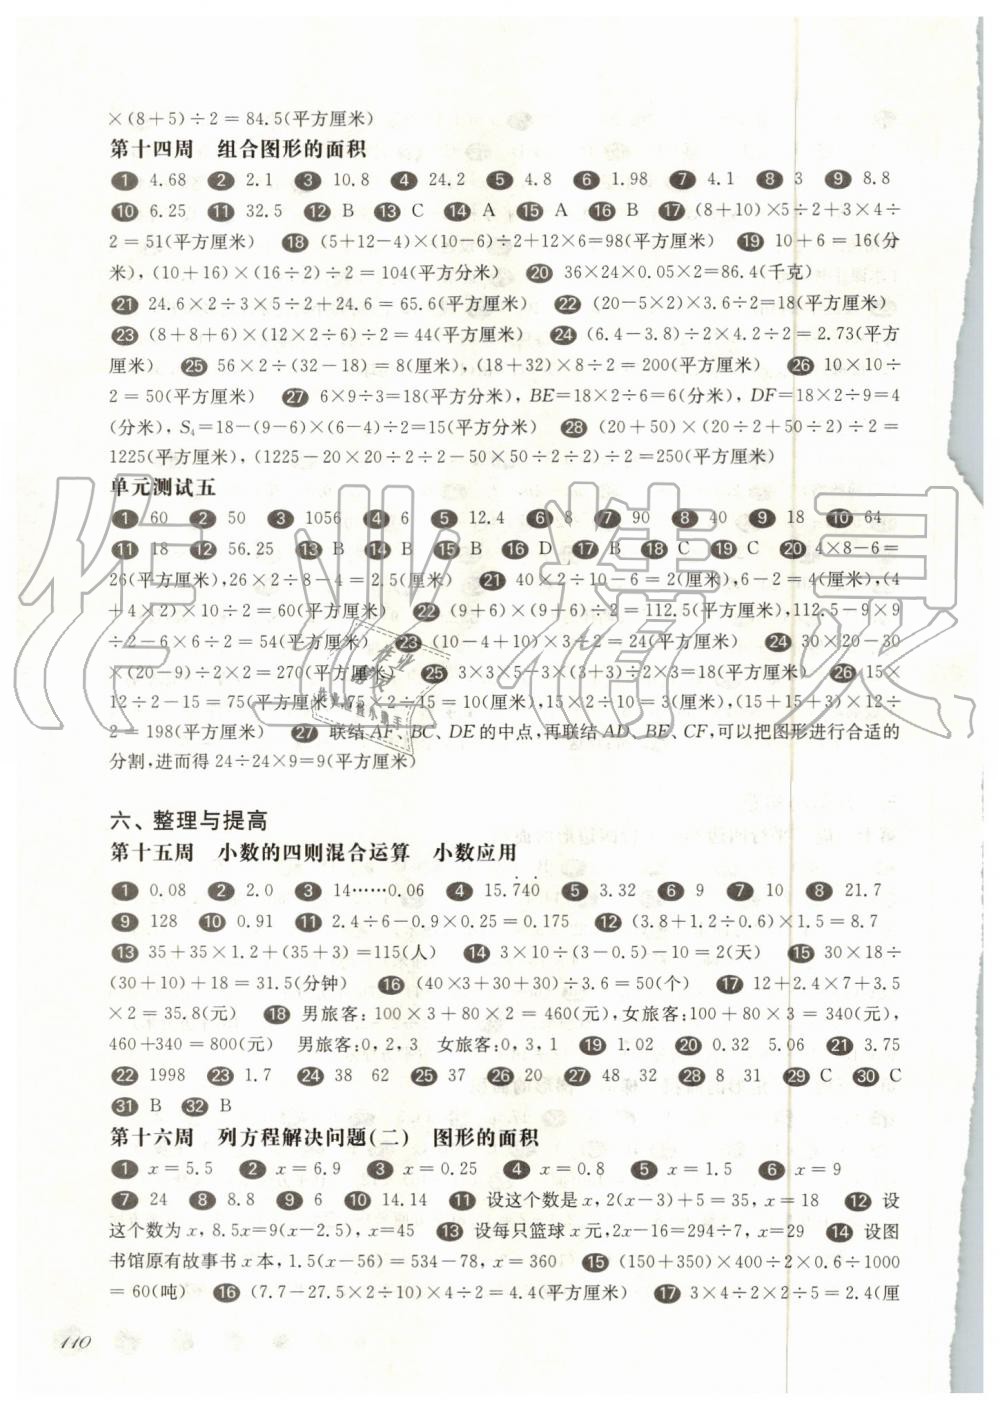 ×(8+5)÷2=84.5(平方厘米)
第十四周 组合图形的面积
1 4.68 2 2.1 3 10.8 4 24.2 5 4.8 6 1.98 7 4.1 8 3 9 8.8
10 6.25 11 32.5 12 B 13 C 14 A 15 A 16 B 17 (8+10)×5÷2+3×4÷
2=51(平方厘米) 18 (5+12-4)×(10-6)÷2+12×6=98(平方厘米) 19 10+6=16(分
米),(10+16)×(16÷2)÷2=104(平方分米) 20 36×24×0.05×2=86.4(千克)
21 24.6×2÷3×5÷2+24.6=65.6(平方厘米) 22 (20-5×2)×3.6÷2=18(平方厘米)
23 (8+8+6)×(12×2÷6)÷2=44(平方厘米) 24 (6.4-3.8)÷2×4.2÷2=2.73(平方
厘米) 25 56×2÷(32-18)=8(厘米),(18+32)×8÷2=200(平方厘米) 26 10×10÷
2=50(平方厘米) 27 6×9÷3=18(平方分米),BE=18×2÷6=6(分米),DF=18×2÷9=4
(分米),S₄=18-(9-6)×(6-4)÷2=15(平方分米) 28 (20+50)×(20÷2+50÷2)÷2=
1225(平方厘米),(1225-20×20÷2÷2-50×50÷2÷2)÷2=250(平方厘米)
单元测试五
1 60 2 50 3 1056 4 6 5 12.4 6 8 7 90 8 40 9 18 10 64
11 18 12 56.25 13 B 14 B 15 B 16 D 17 B 18 C 19 C 20 4×8-6=
26(平方厘米),26×2÷8-4=2.5(厘米) 21 40×2÷10-6=2(厘米),6-2=4(厘米),(4
+4×2)×10÷2=60(平方厘米) 22 (9+6)×(9+6)÷2=112.5(平方厘米),112.5-9×9
÷2-6×6÷2=54(平方厘米) 23 (10-4+10)×3÷2=24(平方厘米) 24 30×20-30
×(20-9)÷2×2=270(平方厘米) 25 3×3×5-3×(3+3)÷2×3=18(平方厘米) 26 15×
12÷2-15=75(平方厘米),75×2÷15=10(厘米),15×2÷10=3(厘米),(15+15+3)×12÷
2=198(平方厘米) 27 联结AF、BC、DE的中点,再联结AD、BE、CF,可以把图形进行合适的
分割,进而得24÷24×9=9(平方厘米)
六、整理与提高
第十五周 小数的四则混合运算 小数应用
1 0.08 2 2.0 3 14……0.06 4 15.7̇40̇ 5 3.32 6 9 7 10 8 21.7
9 128 10 0.91 11 2.4÷6-0.9×0.25=0.175 12 (3.8+1.2÷0.6)×1.5=8.7
13 35+35×1.2+(35+3)=115(人) 14 3×10÷(3-0.5)-10=2(天) 15 30×18÷
(30+10)+18=31.5(分钟) 16 (40×3+30+30)÷3.6=50(个) 17 12+2.4×7+3.5
×2=35.8(元) 18 男旅客:100×3+80×2=460(元),女旅客:100+80×3=340(元),
460+340=800(元) 男旅客:0,2,3 女旅客:0,3,1 19 1.02 20 0.32 5.06 21 3.75
22 1998 23 1.7 24 38 62 25 37 26 20 27 48 32 28 8 31 29 C 30 C
31 B 32 B
第十六周 列方程解决问题(二) 图形的面积
1 x=5.5 2 x=6.9 3 x=0.25 4 x=0.8 5 x=1.5 6 x=9
7 24 8 8.8 9 6 10 14.14 11 设这个数是x,2(x-3)+5=35,x=18 12 设
这个数为x,8.5x=9(x-2.5),x=45 13 设每只篮球x元,2x-16=294÷7,x=29 14 设图
书馆原有故事书x本,1.5(x-56)=534-78,x=360 15 (150+350)×400÷2×0.6÷1000
=60(吨) 16 (7.7-27.5×2÷10)×4÷2=4.4(平方厘米) 17 3×4÷2×2÷5=2.4(厘
110
作业精灵
作业
精灵